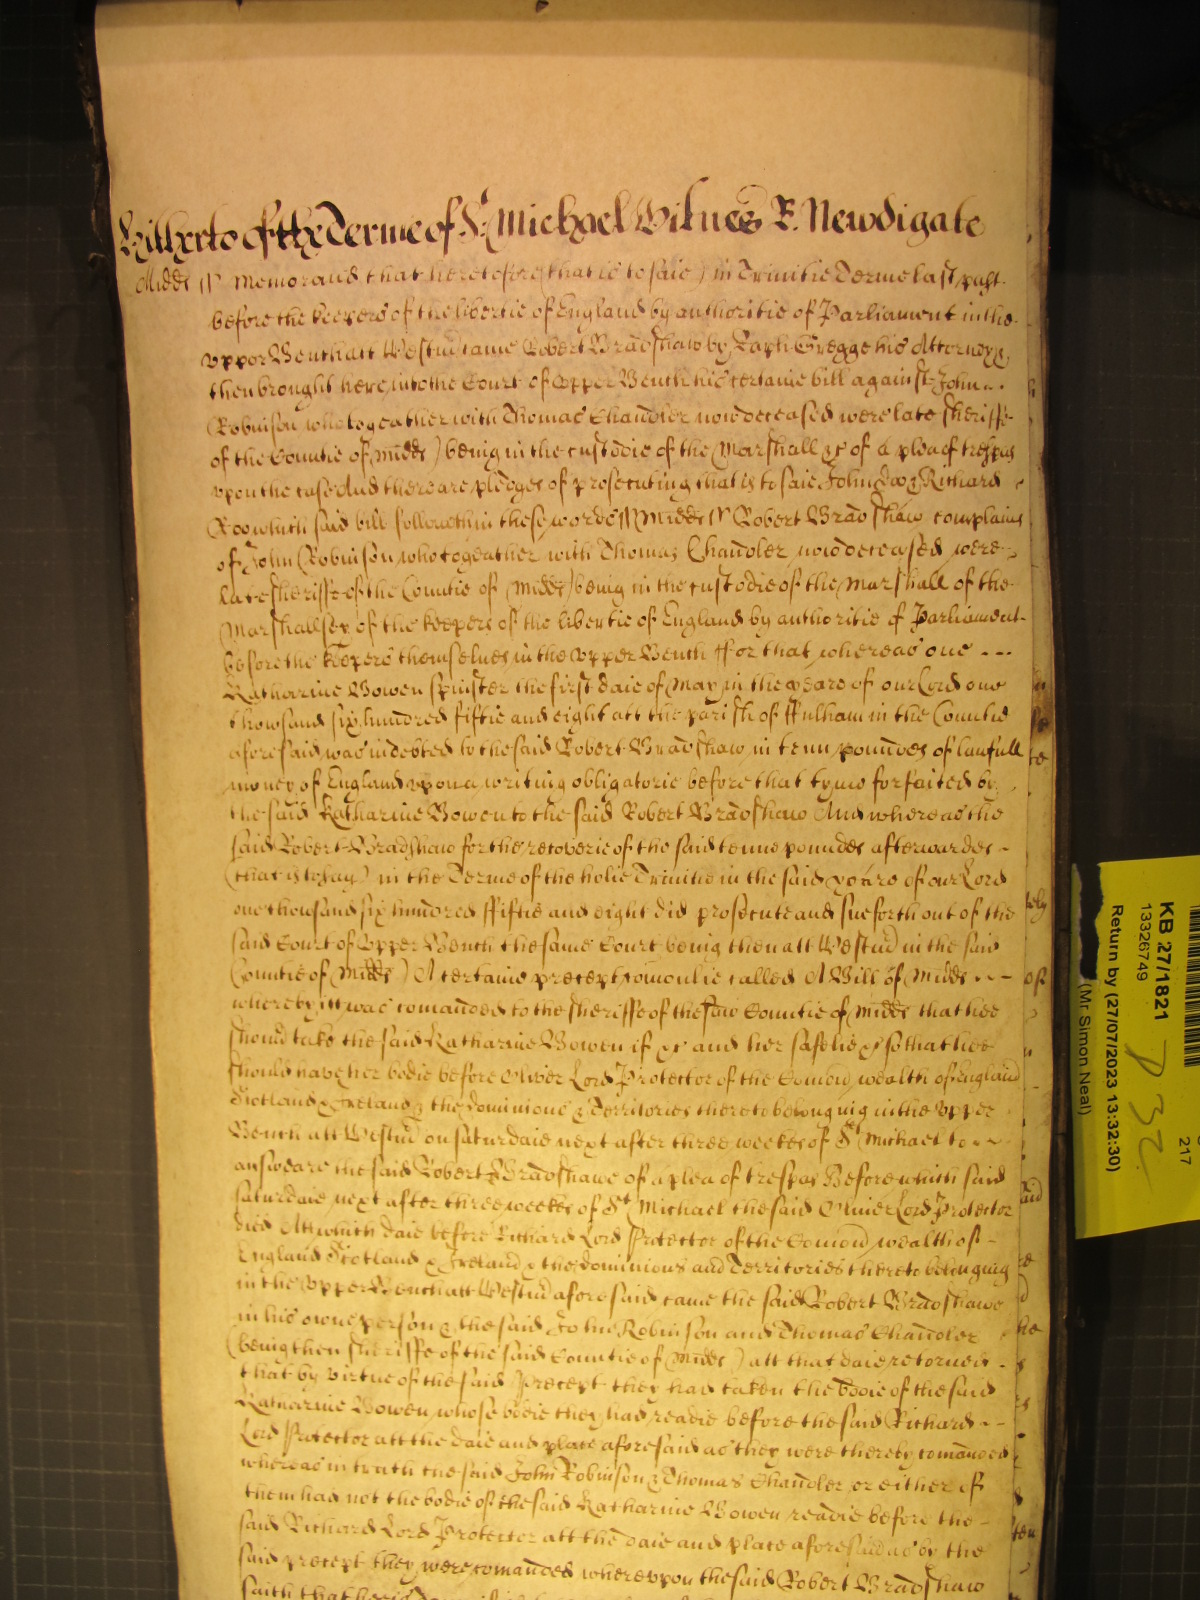 Hitherto of the Terme of St. Michael Witnes R. Newdigate
Midds ss Memorand that heretofore (that is to saie) in Trinitie Terme last past
before the keepers of the libertie of England by authoritie of Parliament in the
upper Bench att Westm came Robert Bradshaw by Raph Gregge his Attorney &
then brought here into the Court of Upper Bench his certaine bill against John
Robinson who togeather with Thomas Chandler now deceased were late sheriffe
of the Countie of Midds) being in the custodie of the Marshall &c of a plea of trespas
upon the case And there are pledges of prosecuting that is to saie John Doo & Richard
Roo which said bill followeth in these words ss Midds ss Robert Bradshaw complains
of John Robinson who togeather with Thomas Chandler now deceased were
late sheriffe of the Countie of Midds) being in the custodie of the Marshall of the
Marshallsey of the keepers of the libertie of England by authoritie of Parliament
before the keepers themselves in the Upper Bench ffor that whereas one
Katharine Bowen spinster the first daie of May in the yeare of our Lord one
thowsand six hundred fiftie and eight att the parish of ffulham in the Countie
aforesaid was indebted to the said Robert Bradshaw in tenn poundes of lawfull
money of England upon a writing obligatorie before that tyme forfaited by
the said Katharine Bowen to the said Robert Bradshaw And whereas the
said Robert Bradshaw for the recoverie of the said tenne poundes afterwardes
(that is to say) in the Terme of the holie Trinitie in the said yeare of our Lord
one thousand six hundred ffiftie and eight did prosecute and sue forth out of the
said Court of Upper Bench the same Court being then att Westm in the said
Countie of Midds) A certaine precept comonlie called A Bill of Midds
whereby itt was comanded to the sheriffe of the Countie of Midds that hee
should take the said Katharine Bowen if &c and her safelie &c so that hee
should have her bodie before Oliver Lord Protector of the Comon wealth of England
Scotland & Ireland & the dominions & Territories thereto belonging in the Upper
Bench att Westm on saturdaie next after three weekes of St Michael to
answeare the said Robert Bradshawe of a plea of trespas Before which said
saturdaie next after three weekes of St Michael the said Oliver Lord Protector
died Att which daie before Richard Lord Protector of the Comon wealth of
England Scotland & Ireland & the dominions and Territories thereto belonging
in the Upper Bench att Westm aforesaid came the said Robert Bradshawe
in his owne person & the said John Robinson and Thomas Chandler
(being then sheriffe of the said Countie of Midds) att that daie retorned
that by virtue of the said precept they had taken the bodie of the said
Katharine Bowen whose bodie they had readie before the said Richard
Lord Protector att the daie and place aforesaid as they were thereby comanded
whereas in truth the said John Robinson & Thomas Chandler or either of
them had not the bodie of the said Katharine Bowen readie before the
said Richard Lord Protector att the daie and place aforesaid as by the
said precept they were comanded whereupon the said Robert Bradshaw
saith that hee is
KB 27/1821
13326749
Return by (27/07/2023 13:32:30)
(Mr Simon Neal)
217